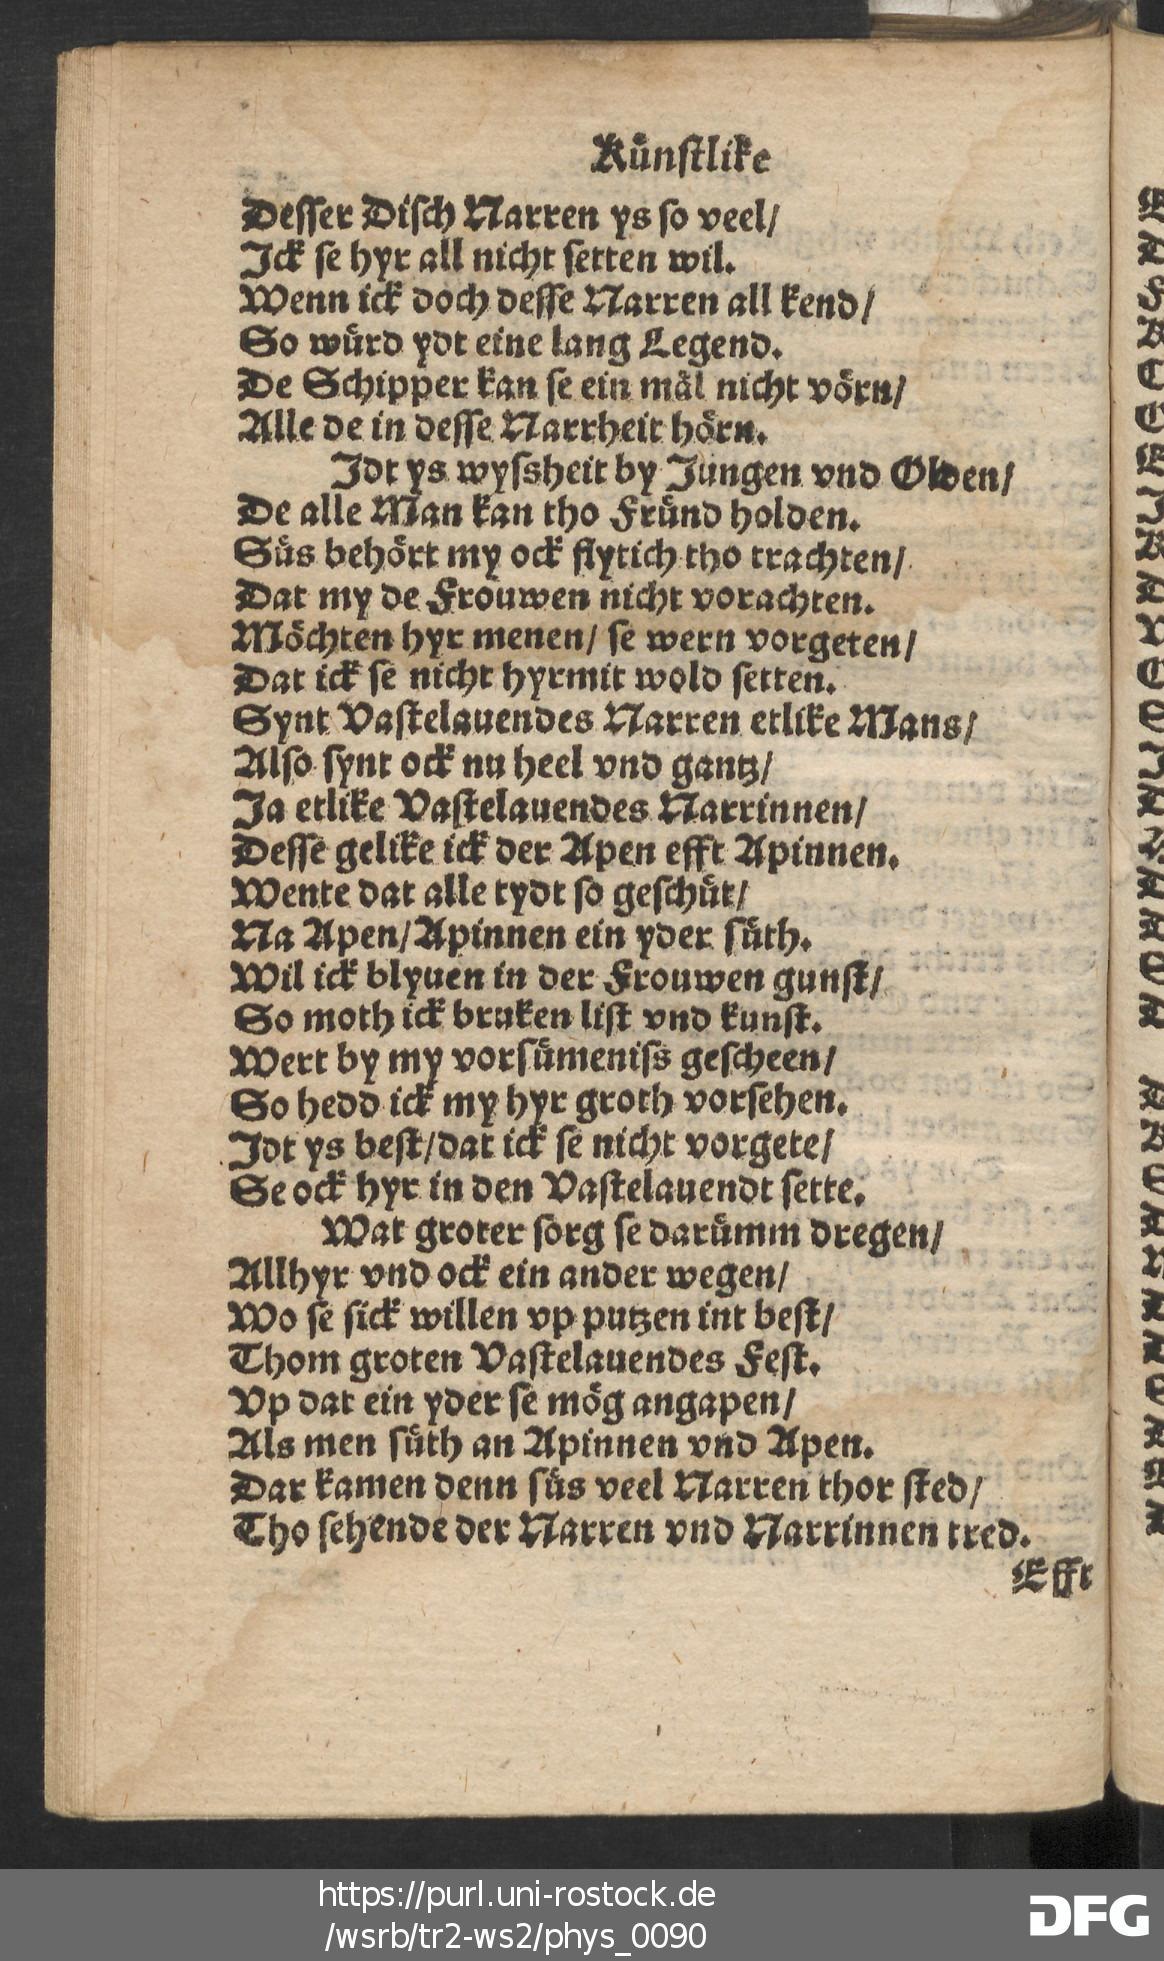 Kuͤnſtlike
Deſſer Diſch Narren ys ſo veel/
Jck ſe hyr all nicht ſetten wil.
Wenn ick doch deſſe Narren all kend/
So wuͤrd ydt eine lang Legend.
De Schipper kan ſe ein maͤl nicht voͤrn/
Alle de in deſſe Narrheit hoͤrn.
Jdt ys wyſsheit by Jungen vnd Olden/
De alle Man kan tho Fruͤnd holden.
Suͤs behoͤrt my ock flytich tho trachten/
Dat my de Frouwen nicht vorachten.
Moͤchten hyr menen/ ſe wern vorgeten/
Dat ick ſe nicht hyrmit wold ſetten.
Synt Vaſtelauendes Narren etlike Mans/
Alſo ſynt ock nu heel vnd gantz/
Ja etlike Vaſtelauendes Narrinnen/
Deſſe gelike ick der Apen efft Apinnen.
Wente dat alle tydt ſo geſchuͤt/
Na Apen/ Apinnen ein yder ſuͤth.
Wil ick blyuen in der Frouwen gunſt/
So moth ick bruken liſt vnd kunſt.
Wert by my vorſuͤmeniſs geſcheen/
So hedd ick my hyr groth vorſehen.
Jdt ys beſt/ dat ick ſe nicht vorgete/
Se ock hyr in den Vaſtelauendt ſette.
Wat groter ſorg ſe daruͤmm dregen/
Allhyr vnd ock ein ander wegen/
Wo ſe ſick willen vp putzen int beſt/
Thom groten Vaſtelauendes Feſt.
Vp dat ein yder ſe moͤg angapen/
Als men ſuͤth an Apinnen vnd Apen.
Dar kamen denn ſuͤs veel Narren thor ſted/
Tho ſehende der Narren vnd Narrinnen tred.
Efft
https://purl.uni-rostock.de
/wsrb/tr2-ws2/phys_0090
DFG